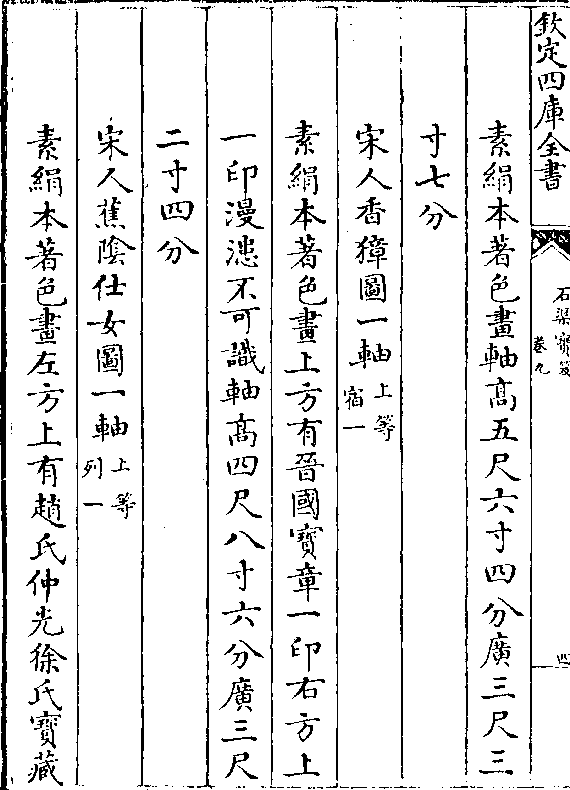 欽定四庫全書
石渠寶笈
卷九
四
素絹本著色畫軸髙五尺六寸四分廣三尺三
寸七分
宋人香獐圖一軸上等宿一
素絹本著色畫上方有晉國寶章一印右方上
一印漫漶不可識軸髙四尺八寸六分廣三尺
二寸四分
宋人蕉陰仕女圖一軸上等列一
素絹本著色畫左方上有趙氏仲光徐氏寶藏